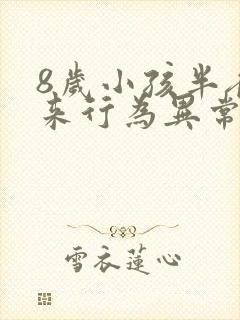 8歲小孩半
来行為異常
雪衣蓮心